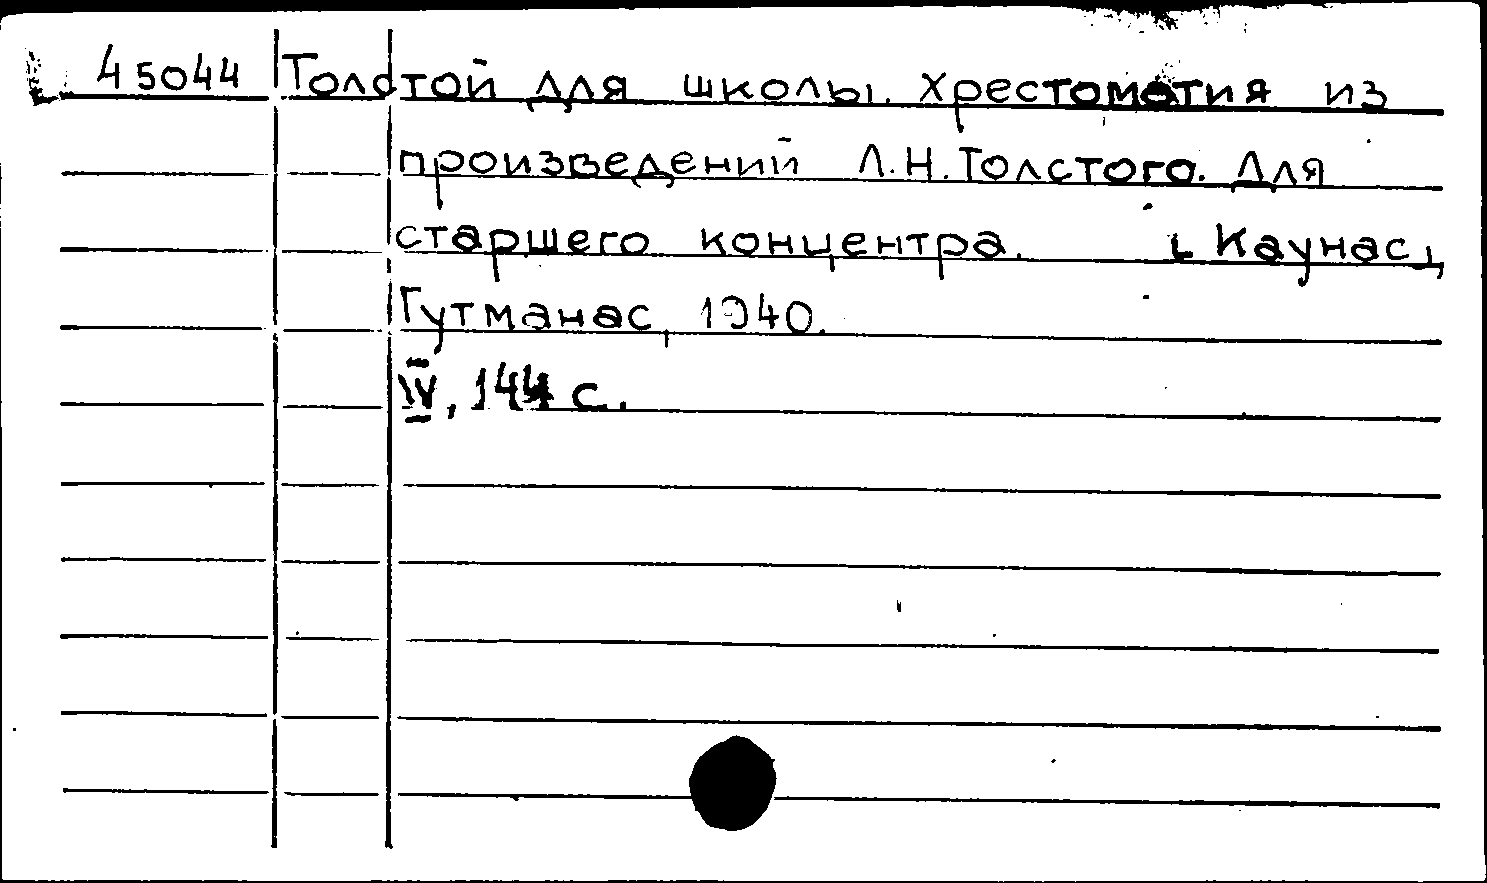 45044 Толстой для школы. Хрестоматия из
произведений Л.Н.Толстого. Для
старшего концентра. [Каунас],
Гутманас, 1940.
IV, 144 с.